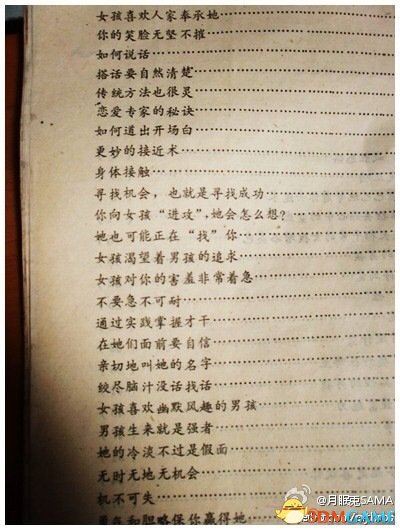 女孩喜欢人家奉承她
你的笑脸无坚不摧
如何说话
搭话要自然清楚
传统方法也很灵
恋爱专家的秘诀
如何道出开场白
更妙的接近术
身体接触
寻找机会，也就是寻找成功
你向女孩“进攻”，她会怎么想？
她也可能正在“找”你
女孩渴望着男孩的追求
女孩对你的害羞非常着急
不要急不可耐
通过实践掌握才干
在她们面前要自信
亲切地叫她的名字
绞尽脑汁没话找话
女孩喜欢幽默风趣的男孩
男孩生来就是强者
她的冷淡不过是假面
无时无地无机会
机不可失
和胆略保你赢得她
@月眠兔SAMA